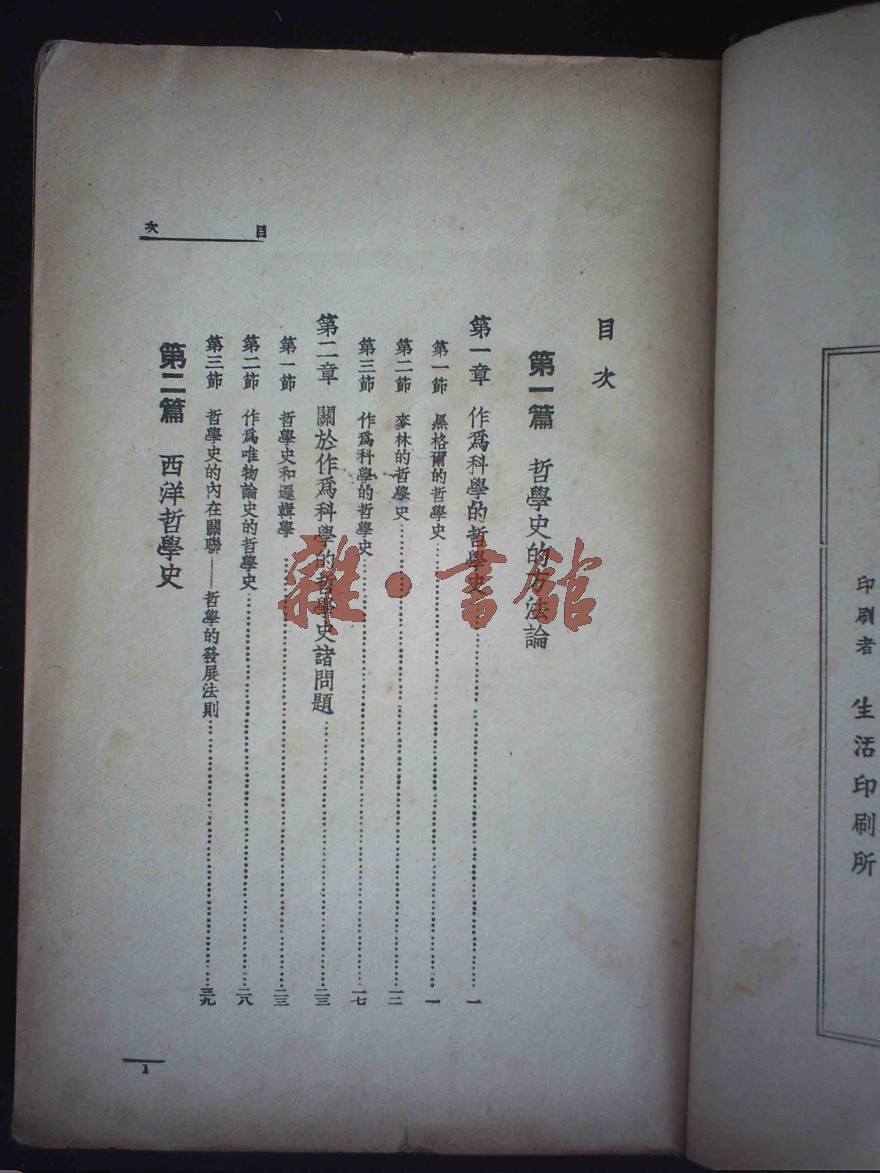 印刷者 生活印刷所
目次
目次
第一篇 哲學史的方法論
第一章 作爲科學的哲學史……一
第一節 黑格爾的哲學史……一
第二節 麥林的哲學史……一二
第三節 作爲科學的哲學史……一七
第二章 關於作爲科學的哲學史諸問題……二三
第一節 哲學史和邏輯學……二三
第二節 作爲唯物論史的哲學史……二八
第三節 哲學史的內在關聯——哲學的發展法則……三九
第二篇 西洋哲學史
1
雜·書館